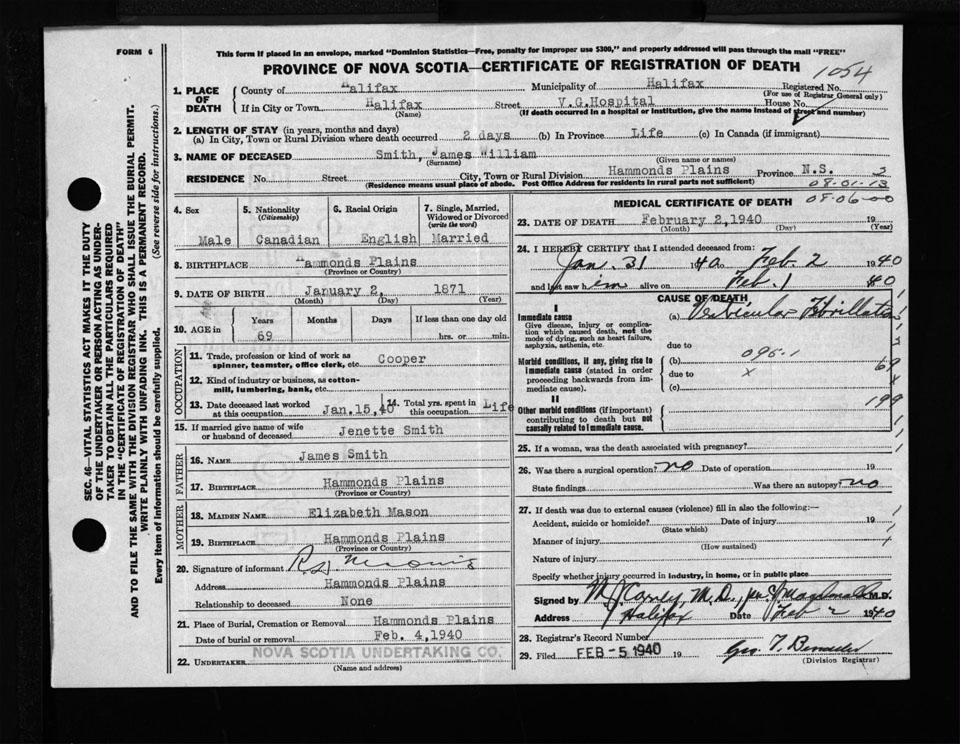 FORM 6
This form if placed in an envelope, marked "Dominion Statistics—Free, penalty for improper use $300," and properly addressed will pass through the mail "FREE"
PROVINCE OF NOVA SCOTIA—CERTIFICATE OF REGISTRATION OF DEATH
1054
1. PLACE OF DEATH
County of Halifax Municipality of Halifax Registered No.
(For use of Registrar General only)
If in City or Town Halifax Street V.G.Hospital House No.
(Name) (If death occurred in a hospital or institution, give the name instead of street and number)
2. LENGTH OF STAY (in years, months and days)
(a) In City, Town or Rural Division where death occurred 2 days (b) In Province Life (c) In Canada (if immigrant)
3. NAME OF DECEASED Smith, James William
(Surname) (Given name or names)
RESIDENCE No. Street City, Town or Rural Division Hammonds Plains Province N.S.
(Residence means usual place of abode. Post Office Address for residents in rural parts not sufficient)
08-01-13
08-06-00
4. Sex Male
5. Nationality (Citizenship) Canadian
6. Racial Origin English
7. Single, Married, Widowed or Divorced (write the word) Married
8. BIRTHPLACE Hammonds Plains
(Province or Country)
9. DATE OF BIRTH January 2, 1871
(Month) (Day) (Year)
10. AGE in Years Months Days If less than one day old
69 hrs. or min.
OCCUPATION
11. Trade, profession or kind of work as spinner, teamster, office clerk, etc. Cooper
12. Kind of industry or business, as cotton-mill, lumbering, bank, etc.
13. Date deceased last worked at this occupation Jan.15,40
14. Total yrs. spent in this occupation Life
15. If married give name of wife or husband of deceased Jenette Smith
FATHER
16. NAME James Smith
17. BIRTHPLACE Hammonds Plains
(Province or Country)
MOTHER
18. MAIDEN NAME Elizabeth Mason
19. BIRTHPLACE Hammonds Plains
(Province or Country)
20. Signature of informant
Address Hammonds Plains
Relationship to deceased None
21. Place of Burial, Cremation or Removal Hammonds Plains
Date of burial or removal Feb. 4,1940
22. UNDERTAKER NOVA SCOTIA UNDERTAKING CO.
(Name and address)
MEDICAL CERTIFICATE OF DEATH
23. DATE OF DEATH February 2,1940 19
(Month) (Day) (Year)
24. I HEREBY CERTIFY that I attended deceased from:
Jan. 31 1940 to Feb. 2 1940
and last saw him alive on Feb. 1 40
CAUSE OF DEATH
I
Immediate cause (a) Ventricular Fibrillation
Give disease, injury or complication which caused death, not the mode of dying, such as heart failure, asphyxia, asthenia, etc.
due to
Morbid conditions, if any, giving rise to immediate cause (stated in order proceeding backwards from immediate cause).
(b) 095-1
due to x
(c)
69
199
II
Other morbid conditions (if important) contributing to death but not causally related to immediate cause.
25. If a woman, was the death associated with pregnancy?
26. Was there a surgical operation? no Date of operation 19
State findings Was there an autopsy? no
27. If death was due to external causes (violence) fill in also the following:—
Accident, suicide or homicide? Date of injury 19
(State which)
Manner of injury
(How sustained)
Nature of injury
Specify whether injury occurred in industry, in home, or in public place
Signed by M. J. Carney, M.D., M.D.
Address Halifax Date Feb 2 1940
28. Registrar's Record Number
29. Filed FEB -5 1940 19 Geo. T.
(Division Registrar)
SEC. 46—VITAL STATISTICS ACT MAKES IT THE DUTY OF THE UNDERTAKER OR PERSON ACTING AS UNDERTAKER TO OBTAIN ALL THE PARTICULARS REQUIRED IN THE "CERTIFICATE OF REGISTRATION OF DEATH" AND TO FILE THE SAME WITH THE DIVISION REGISTRAR WHO SHALL ISSUE THE BURIAL PERMIT.
WRITE PLAINLY WITH UNFADING INK. THIS IS A PERMANENT RECORD.
Every item of information should be carefully supplied. (See reverse side for instructions.)